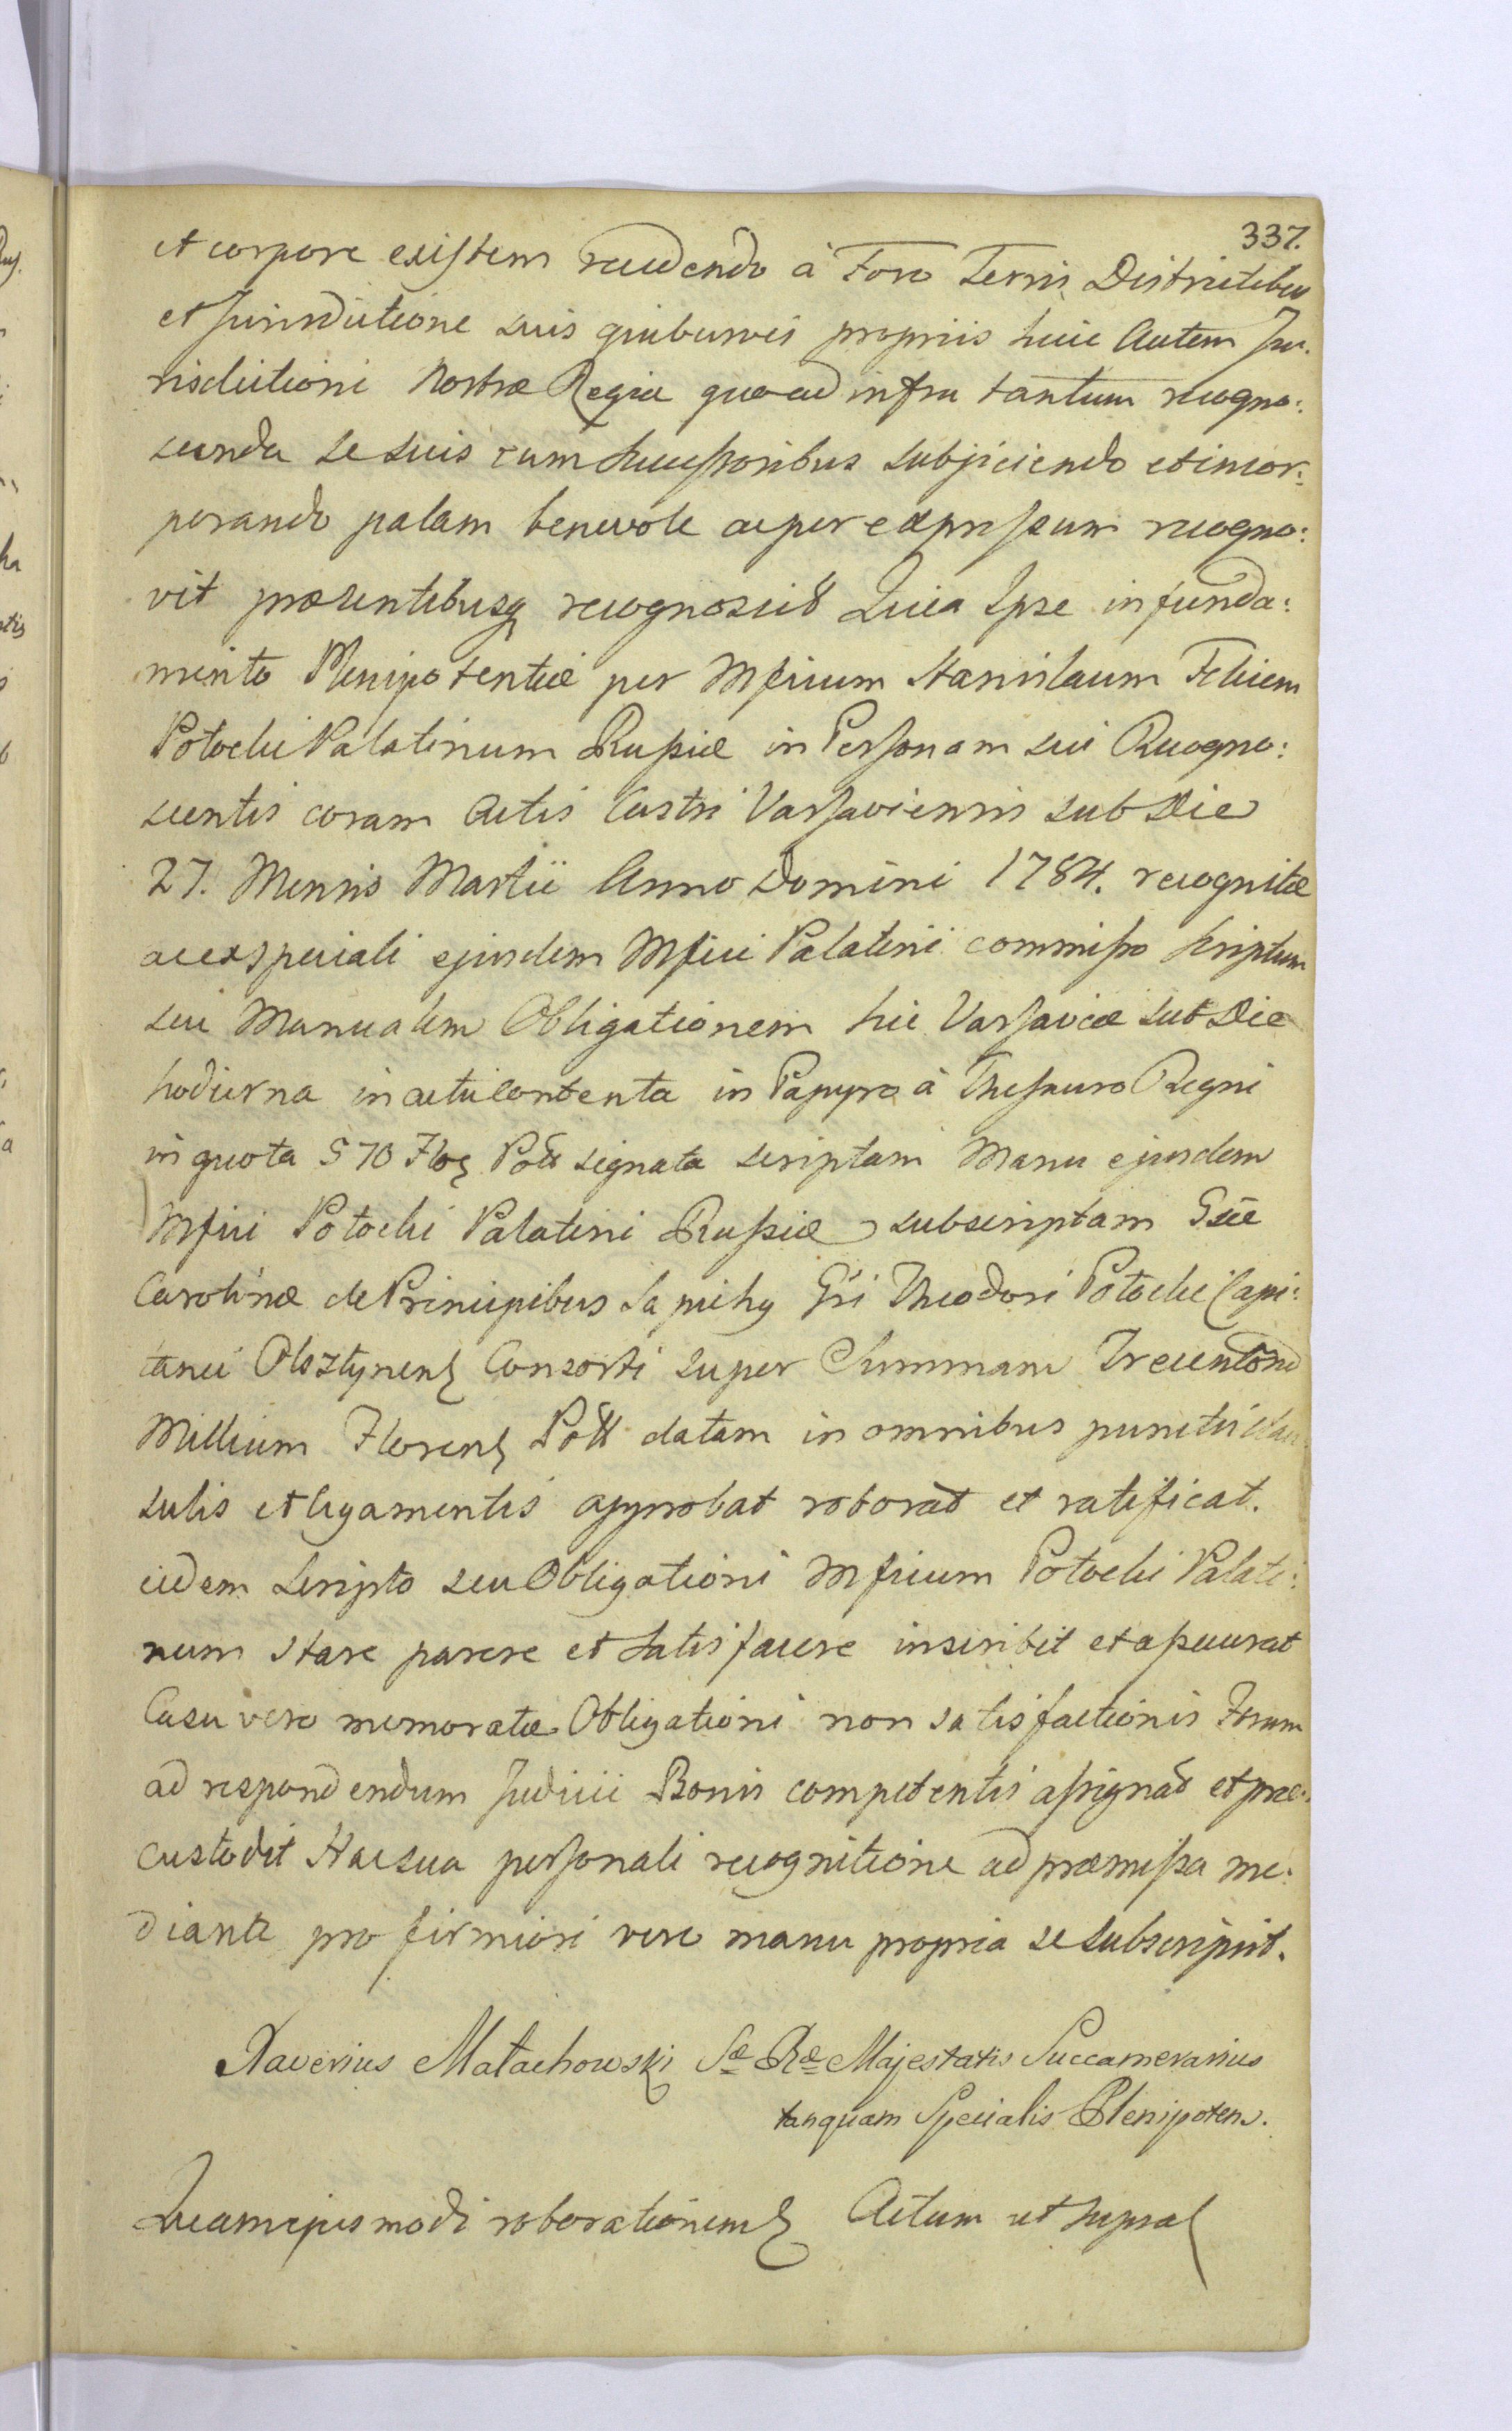 337.
et corpore existens recedendo à Foro Terris Districtibus
et Jurisdictione suis quibusvis propriis huic autem Ju:
risdictioni Nostræ Regiæ quoad infra tantum recogno:
scenda se suis cum Successoribus subjiciendo et incor:
porando palam benevole ac per expressum recogno:
vit præsentibusq recognoscit Quia Ipse in funda:
mento Plenipotentiæ per Mficum Stanislaum Felicem
Potocki Palatinum Russiæ in Personam sui Recogno:
scentis coram Actis Castri Varsaviensis sub Die
27. Mensis Martii Anno Domini 1784. recognitæ
ac ex speciali ejusdem Mfici Palatini commisso Scriptum
seu Manualem Obligationem hic Varsaviæ sub Die
hodierna in actu contenta in Papyro à Thesauro Regni
in quota 570 Flor Poll signata scriptam Manu ejusdem
Mfici Potocki Palatini Russiæ subscriptam Gsæ
Carolinæ de Principibus Sapichy Gsi Theodori Potocki Capi:
tanei Olsztynens Consorti super Summam Trecentorum
Millium Floren Poll datam in omnibus punctis clau
sulis et ligamentis approbat roborat et ratificat.
eidem Scripto seu Obligationi Mficum Potocki Palati:
num stare parere et satisfacere inscribit et assecurat
Casu vero memoratæ Obligationi non satisfactionis Forum
ad respondendum Judicii Bonis competentis assignat et præ:
custodit Hac sua personali recognitione ad præmissa me:
diante pro firmiori vero manu propria se subscripsit.
Xaverius Małachowski Sæ Ræ Majestatis Succamerarius
tanquam Specialis Plenipotens.
Quam ejusmodi roborationem Actum ut supra